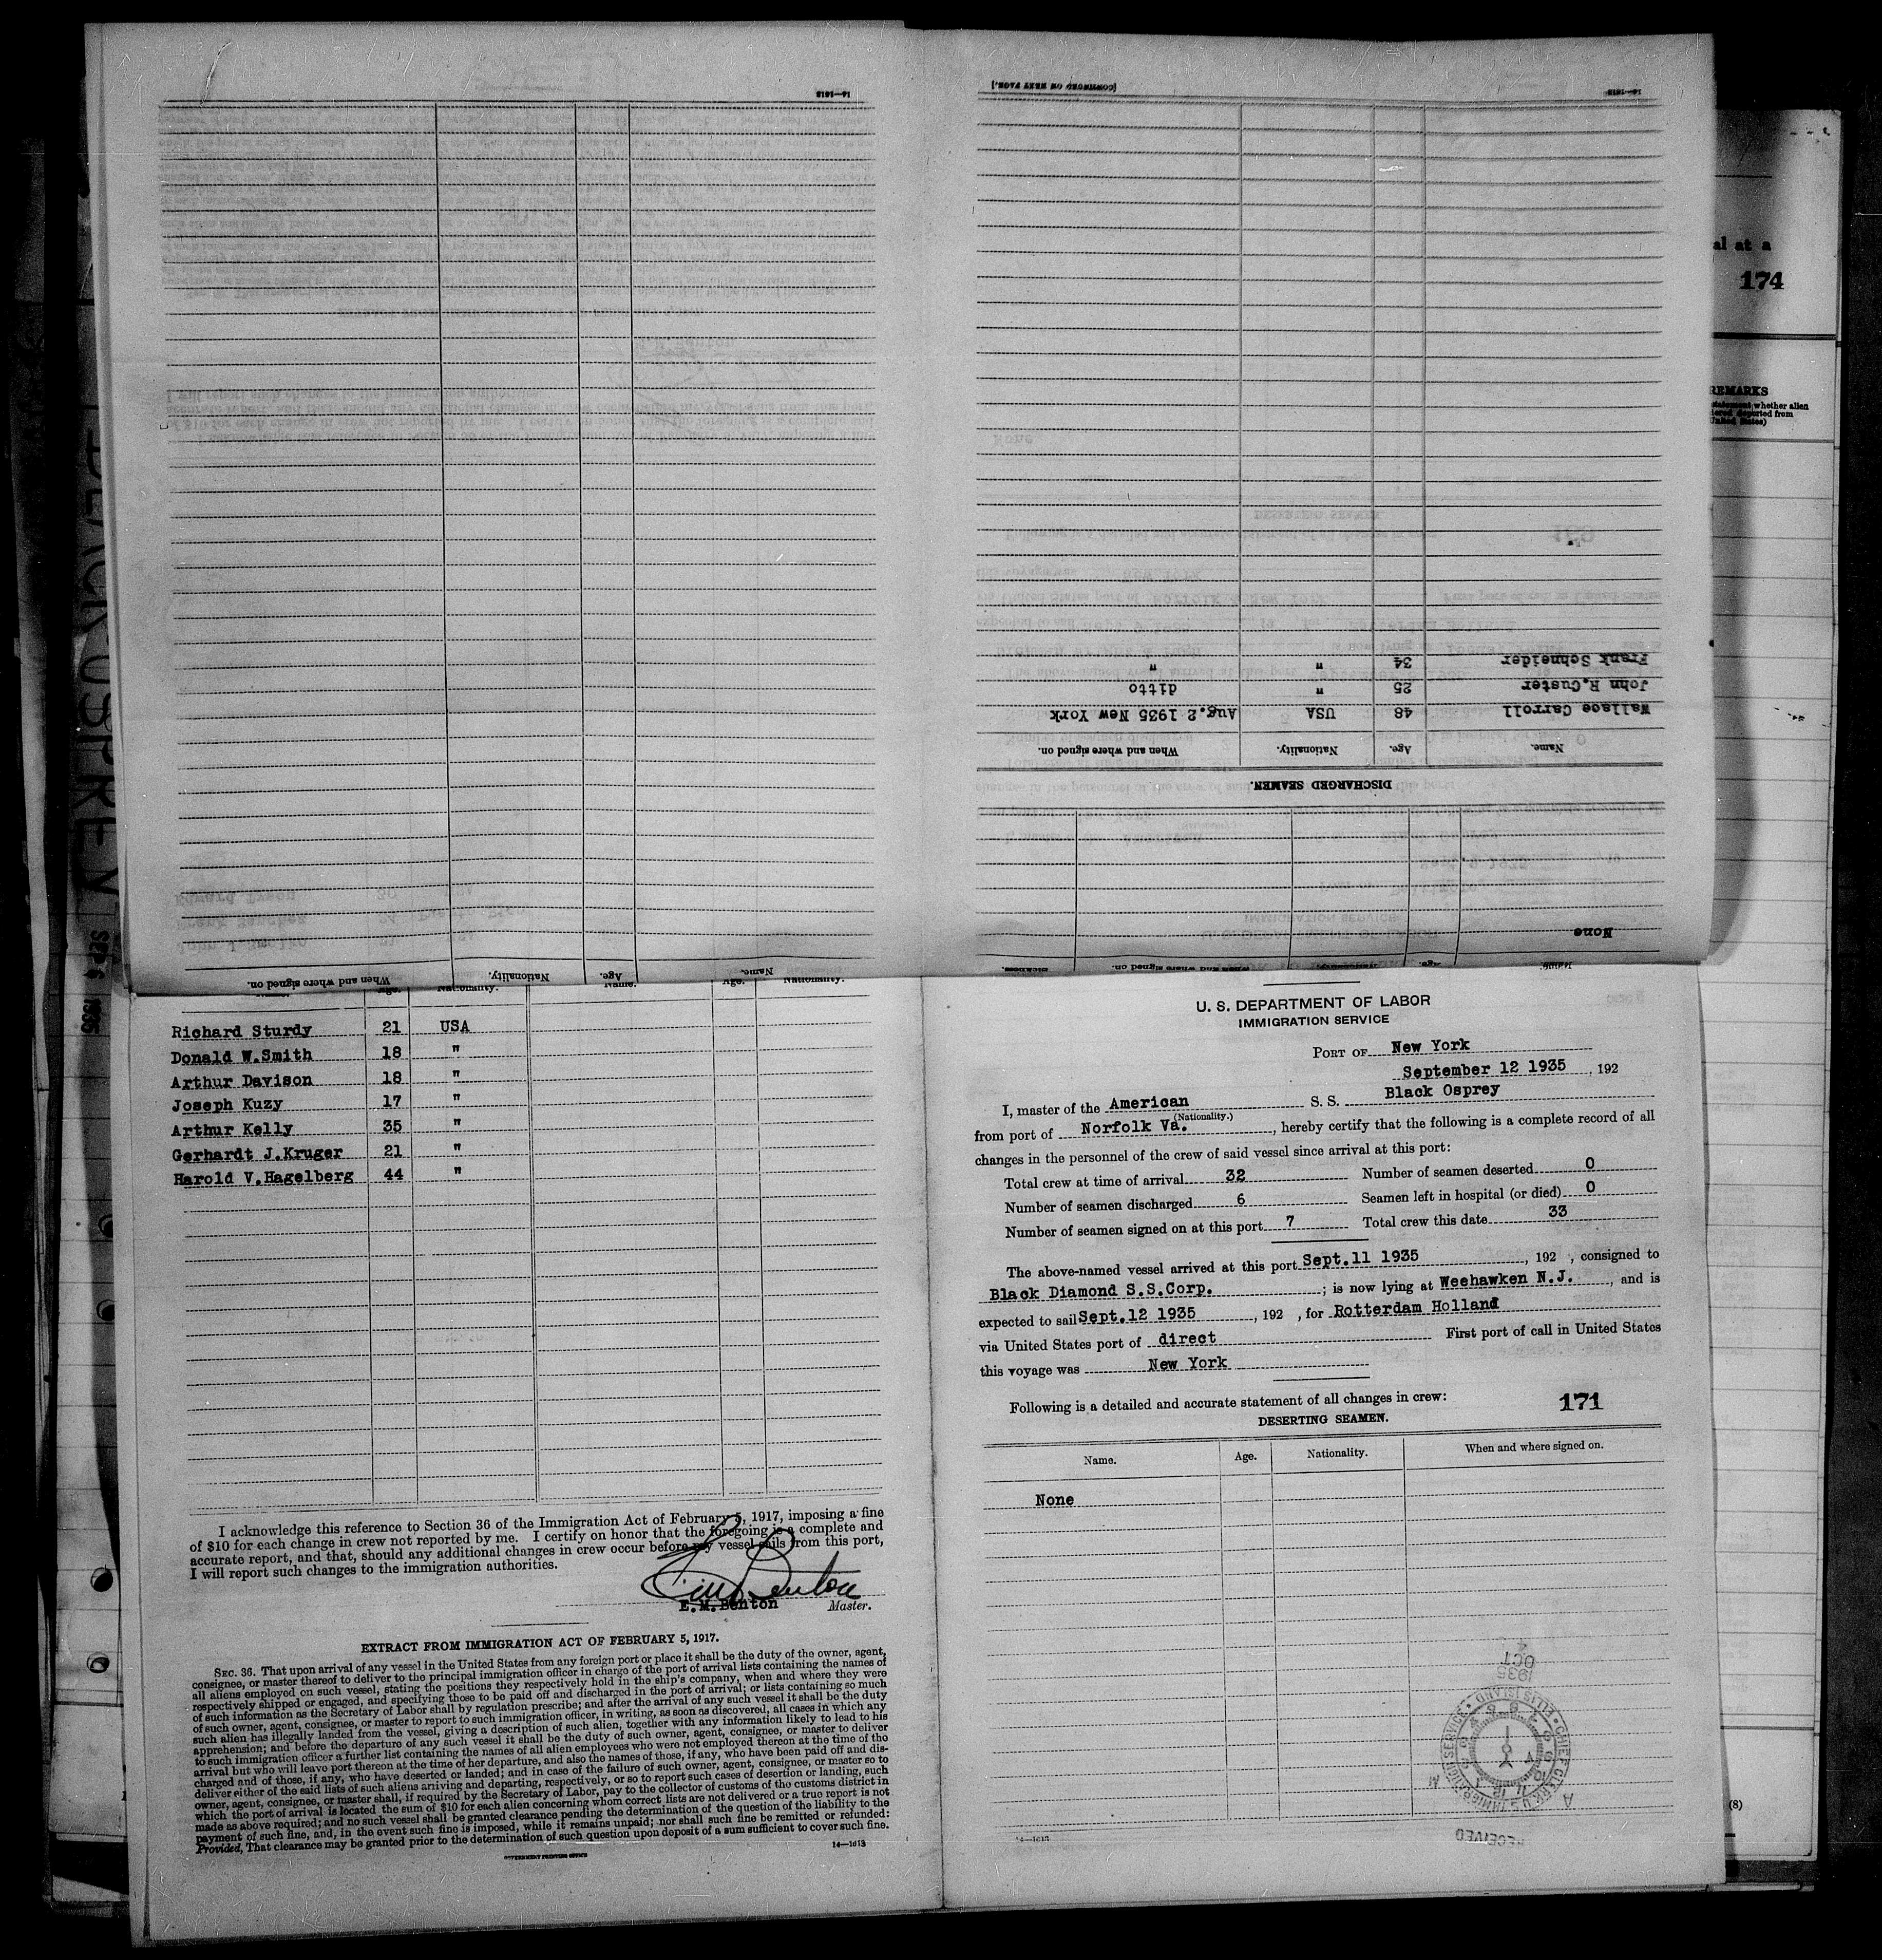 14—1613
[CONTINUED ON NEXT PAGE.]
14—1613
Frank Schneider 34 " "
John R.Custer 25 " ditto
Wallace Carroll 48 USA Aug.2 1935 New York
Name. Age. Nationality. When and where signed on.
DISCHARGED SEAMEN.
None
Name. Age. Nationality. When and where signed on. Sickness.
Name. Age. Nationality. When and where signed on.
al at a
174
REMARKS
statement whether alien
deported from
United States)
(8)
BLACK OSPREY
SEP 6 1935
Name. Age. Nationality. Name. Age. Nationality.
Richard Sturdy 21 USA
Donald W.Smith 18 "
Arthur Davison 18 "
Joseph Kuzy 17 "
Arthur Kelly 35 "
Gerhardt J.Kruger 21 "
Harold V.Hagelberg 44 "
I acknowledge this reference to Section 36 of the Immigration Act of February 5, 1917, imposing a fine
of $10 for each change in crew not reported by me. I certify on honor that the foregoing is a complete and
accurate report, and that, should any additional changes in crew occur before my vessel sails from this port,
I will report such changes to the immigration authorities.
E.M.Benton
E.M.Benton Master.
EXTRACT FROM IMMIGRATION ACT OF FEBRUARY 5, 1917.
SEC. 36. That upon arrival of any vessel in the United States from any foreign port or place it shall be the duty of the owner, agent,
consignee, or master thereof to deliver to the principal immigration officer in charge of the port of arrival lists containing the names of
all aliens employed on such vessel, stating the positions they respectively hold in the ship's company, when and where they were
respectively shipped or engaged, and specifying those to be paid off and discharged in the port of arrival; or lists containing so much
of such information as the Secretary of Labor shall by regulation prescribe; and after the arrival of any such vessel it shall be the duty
of such owner, agent, consignee, or master to report to such immigration officer, in writing, as soon as discovered, all cases in which any
such alien has illegally landed from the vessel, giving a description of such alien, together with any information likely to lead to his
apprehension; and before the departure of any such vessel it shall be the duty of such owner, agent, consignee, or master to deliver
to such immigration officer a further list containing the names of all alien employees who were not employed thereon at the time of the
arrival but who will leave port thereon at the time of her departure, and also the names of those, if any, who have been paid off and dis-
charged and of those, if any, who have deserted or landed; and in case of the failure of such owner, agent, consignee, or master so to
deliver either of the said lists of such aliens arriving and departing, respectively, or so to report such cases of desertion or landing, such
owner, agent, consignee, or master shall, if required by the Secretary of Labor, pay to the collector of customs of the customs district in
which the port of arrival is located the sum of $10 for each alien concerning whom correct lists are not delivered or a true report is not
made as above required; and no such vessel shall be granted clearance pending the determination of the question of the liability to the
payment of such fine, and, in the event such fine is imposed, while it remains unpaid; nor shall such fine be remitted or refunded:
Provided, That clearance may be granted prior to the determination of such question upon deposit of a sum sufficient to cover such fine.
GOVERNMENT PRINTING OFFICE
14—1613
U. S. DEPARTMENT OF LABOR
IMMIGRATION SERVICE
PORT OF New York
September 12 1935 , 192
I, master of the American S. S. Black Osprey
(Nationality.)
from port of Norfolk Va. , hereby certify that the following is a complete record of all
changes in the personnel of the crew of said vessel since arrival at this port:
Total crew at time of arrival 32 Number of seamen deserted 0
Number of seamen discharged 6 Seamen left in hospital (or died) 0
Number of seamen signed on at this port 7 Total crew this date 33
The above-named vessel arrived at this port Sept.11 1935 , 192 , consigned to
Black Diamond S.S.Corp. ; is now lying at Weehawken N.J. , and is
expected to sail Sept.12 1935 , 192 , for Rotterdam Holland
via United States port of direct First port of call in United States
this voyage was New York
Following is a detailed and accurate statement of all changes in crew:
171
DESERTING SEAMEN.
Name. Age. Nationality. When and where signed on.
None
OCT
1935
CHIEF CLERK U.S. IMMIGRATION SERVICE ELLIS ISLAND
RECEIVED
14—1613